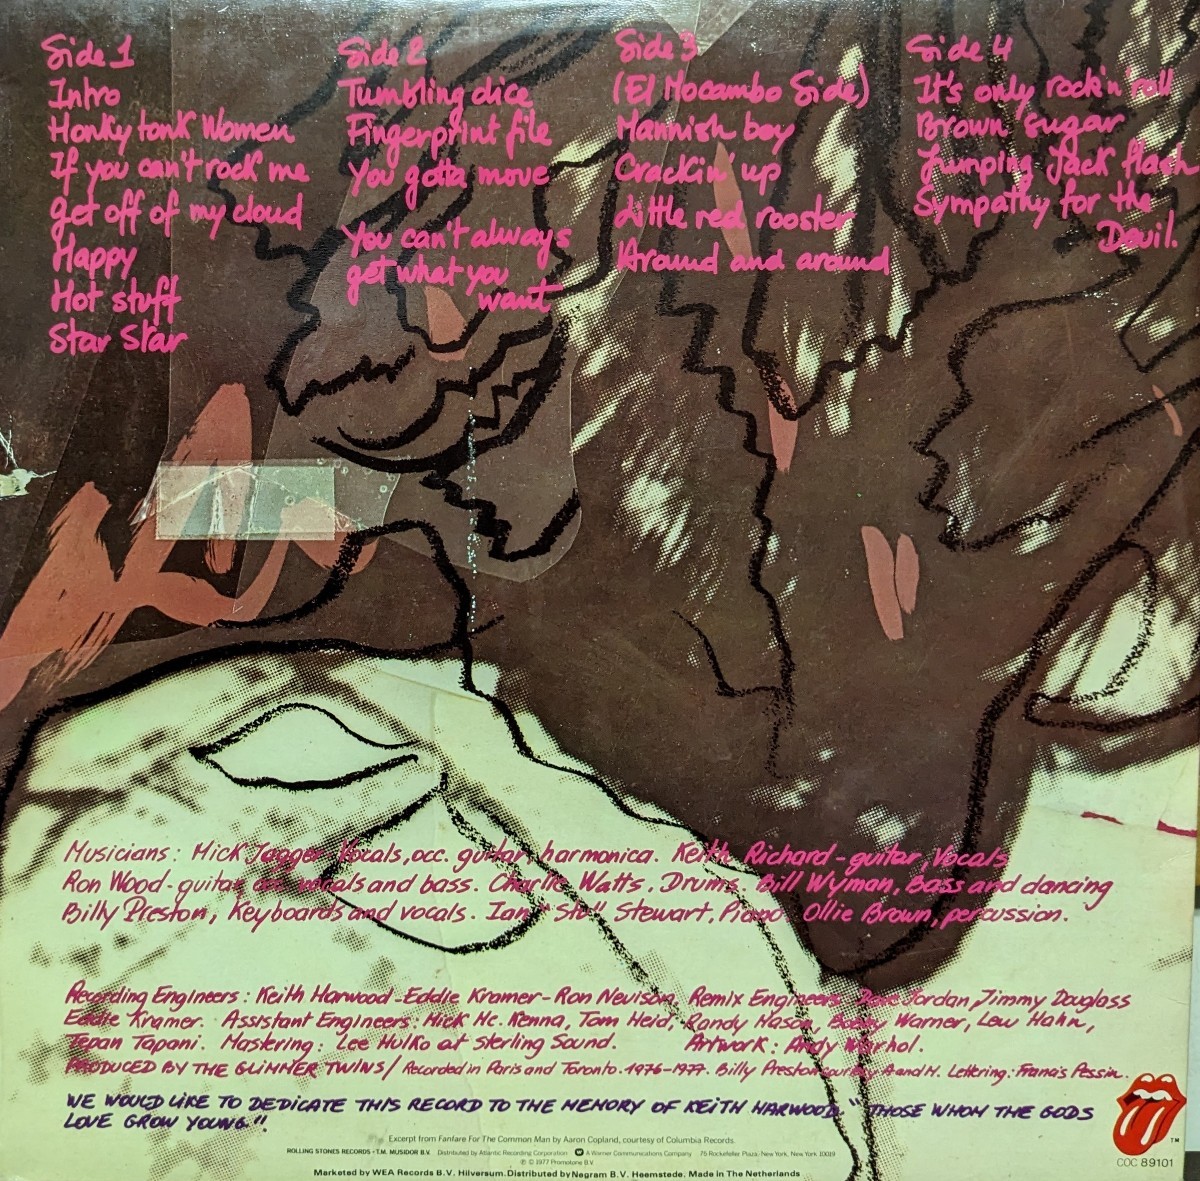 Side 1
Intro
Honky tonk Women
If you can't rock me
get off of my cloud
Happy
Hot stuff
Star star
Side 2
Tumbling dice
Fingerprint file
You gotta move
You can't always
get what you
want
Side 3
(El Mocambo Side)
Mannish boy
Crackin' up
Little red rooster
Around and around
Side 4
It's only rock'n'roll
Brown sugar
Jumping Jack flash
Sympathy for the
Devil.
Musicians: Mick Jagger Vocals, occ. guitar, harmonica. Keith Richard - guitar, Vocals
Ron Wood - guitar and vocals and bass. Charlie Watts. Drums. Bill Wyman, Bass and dancing
Billy Preston, Keyboards and vocals. Ian "Stu" Stewart, Piano Ollie Brown, percussion.
Recording Engineers: Keith Harwood - Eddie Kramer - Ron Nevison, Remix Engineers Dave Jordan, Jimmy Douglass
Eddie Kramer. Assistant Engineers: Mick Mc. Kenna, Tom Heid, Randy Mason, Bobby Warner, Lew Hahn,
Tepan Tapani. Mastering: Lee Hulko at sterling Sound. Artwork: Andy Warhol.
PRODUCED BY THE GLIMMER TWINS / Recorded in Paris and Toronto. 1976-1977. Billy Preston courtesy A and M. Lettering: Francis Pessin.
WE WOULD LIKE TO DEDICATE THIS RECORD TO THE MEMORY OF KEITH HARWOOD. "THOSE WHOM THE GODS
LOVE GROW YOUNG".
Excerpt from Fanfare For The Common Man by Aaron Copland, courtesy of Columbia Records.
ROLLING STONES RECORDS • T.M. MUSIDOR B.V. Distributed by Atlantic Recording Corporation A Warner Communications Company 75 Rockefeller Plaza, New York, New York 10019
℗ © 1977 Promotone B.V.
Marketed by WEA Records B.V. Hilversum. Distributed by Negram B.V. Heemstede. Made in The Netherlands
TM
COC 89101